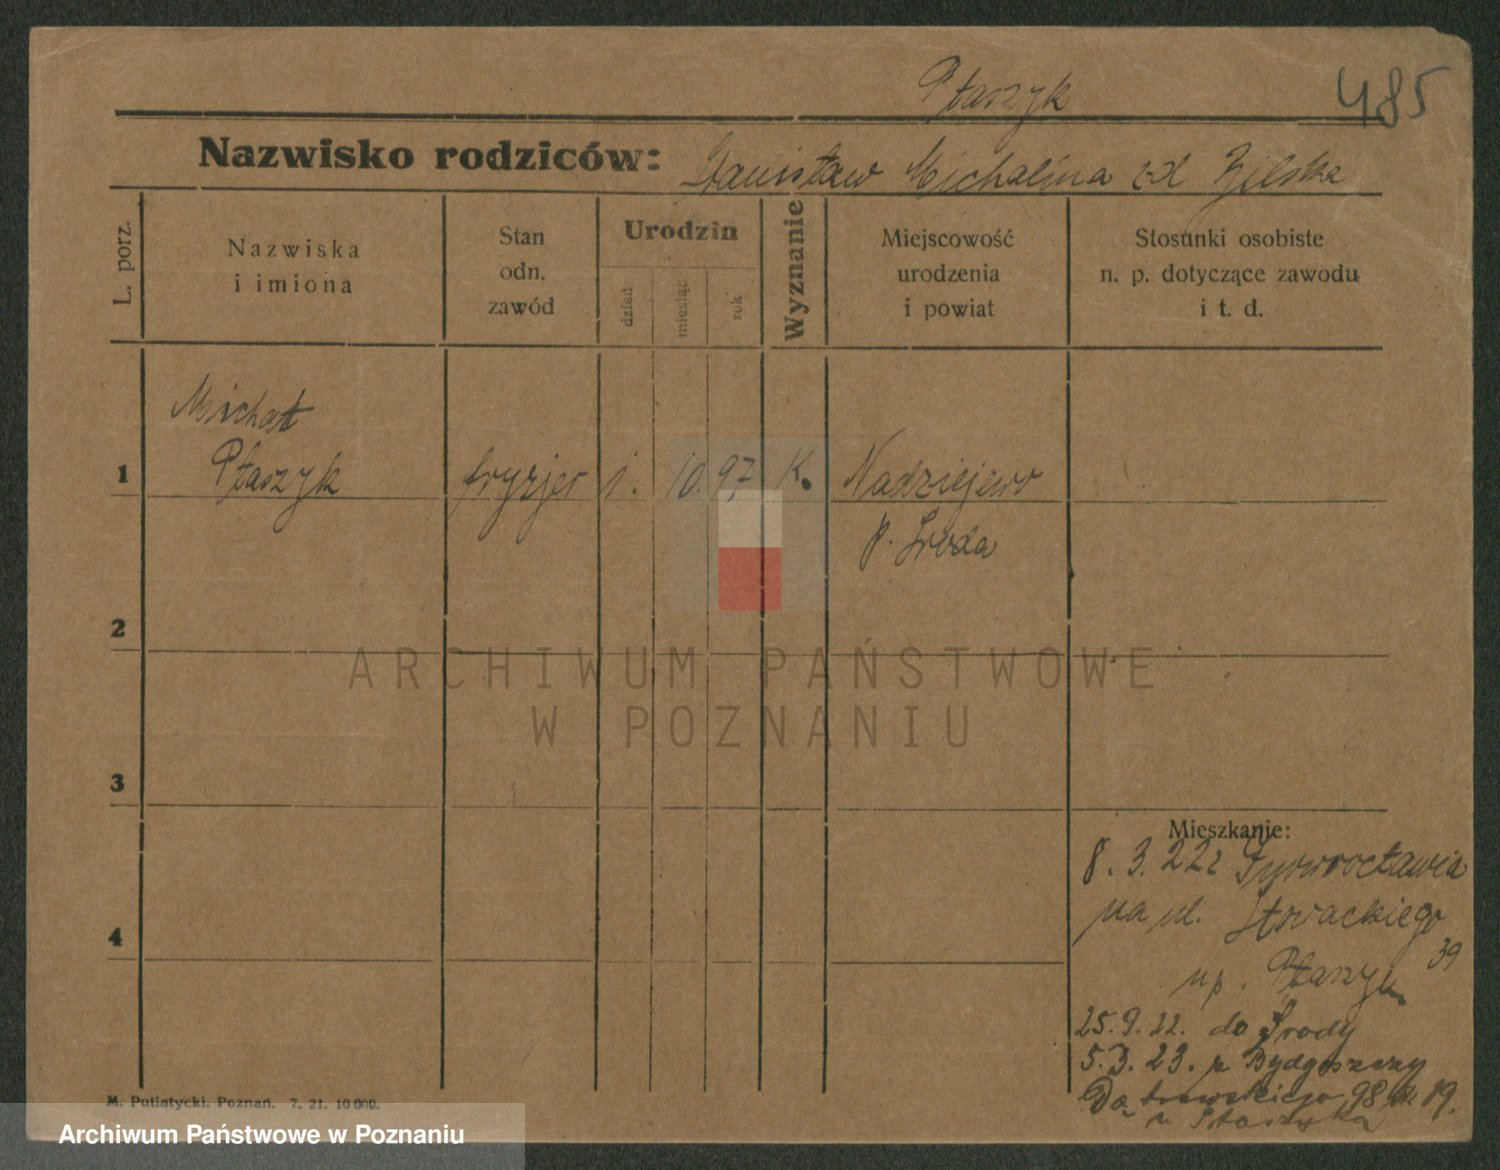 Ptaszyk
485
Nazwisko rodziców: Stanisław Michalina z d Bilska
L. porz.
Nazwiska i imiona
Stan odn. zawód
Urodzin
dzień
miesiąc
rok
Wyznanie
Miejscowość urodzenia i powiat
Stosunki osobiste n. p. dotyczące zawodu i t. d.
Michał
1 Ptaszyk fryzjer i. 10. 97 K. Nadziejewo
p. Środa
2
ARCHIWUM PAŃSTWOWE
W POZNANIU
3
Mieszkanie:
8. 3. 22 z Inowrocławia
na ul. Słowackiego
39
u p. Ptaszyk
4
25. 9. 22. do Środy
5. 3. 23. z Bydgoszczy
Dąbrowskiego 98 19.
M. Putiatycki. Poznań. 7. 21. 10 000.
Archiwum Państwowe w Poznaniu